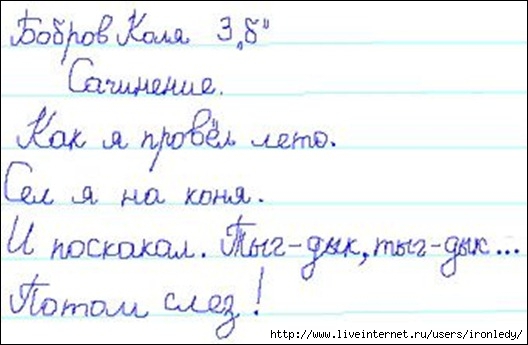 Бобров Коля 3 „б“
Сочинение.
Как я провёл лето.
Сел я на коня.
И поскакал. Тыг-дык, тыг-дык...
Потом слез!
http://www.liveinternet.ru/users/ironledy/